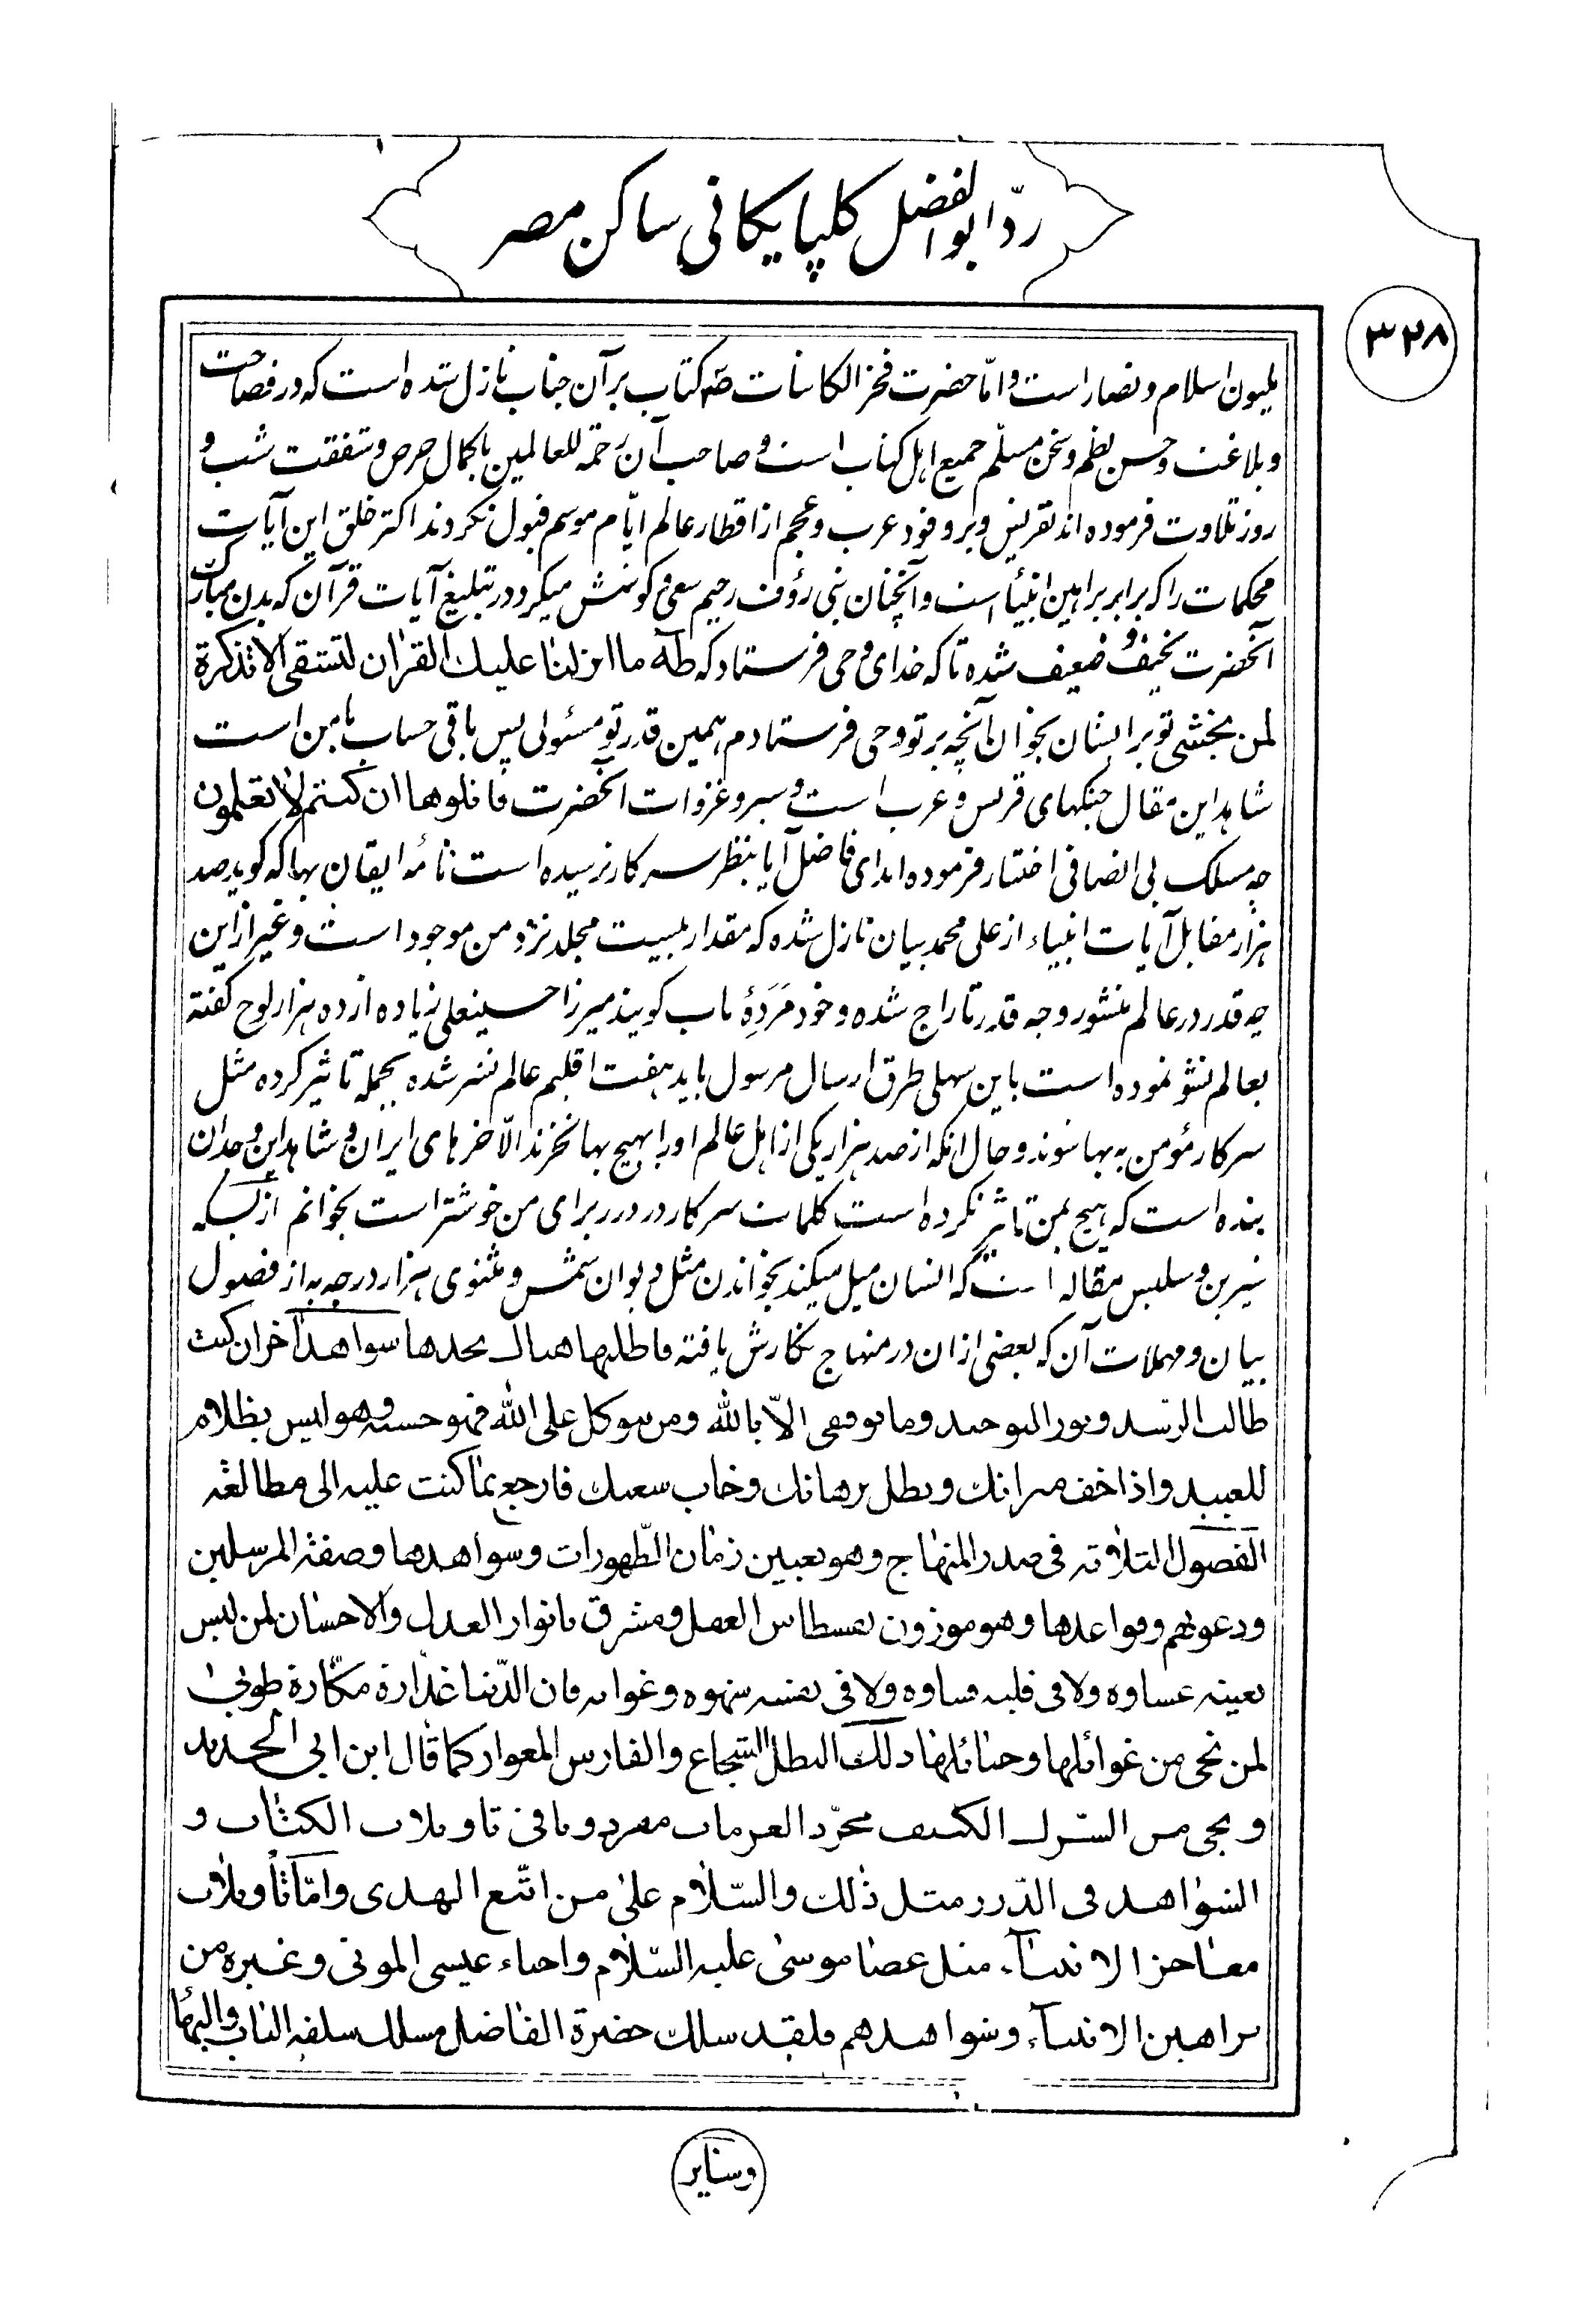 ردّ ابوالفضل کلپایکانی ساکن مصر
۳۲۸
ملیون اسلام و نصار است و امّا حضرت فخر الکاینات صه کتاب بر آن جناب نازل شده است که در فصاحت
و بلاغت و حسن نظم و سخن مسلّم جمیع اهل کتاب است و صاحب آن رحمة للعالمین با کمال حرص و شفقت شب و
روز تلاوت فرموده اند بقریش و بر وفود عرب و عجم از اقطار عالم ایّام موسم قبول نکردند اکثر خلق این آیات
محکمات را که برابر براهین انبیا است و آنچنان نبی رؤف رحیم سعی و کوشش میکرد در تبلیغ آیات قرآن که بدن مبارک
آنحضرت نحیف و ضعیف شده تا که خدای وحی فرستاد که طه ما انزلنا علیک القران لتشقی الا تذکرة
لمن یخشی تو بر ایشان بخوان آنچه بر تو وحی فرستادم همین قدر تو مسئولی پس باقی حساب با من است
شاهد این مقال جنکهای قریش و عرب است و سیر و غزوات آنحضرت فاتلوها ان کنتم لا تعلمون
چه مسلک بی انصافی اختیار فرموده اید ای فاضل آیا بنظر سرکار نرسیده است نامه ایقان بها که کوید صد
هزار مقابل آیات انبیاء از علی محمد بیان نازل شده که مقدار بیست مجلد نزد من موجود است و غیر از این
چه قدر در عالم منشور و چه قدر تاراج شده و خود مَرَدِهٔ باب کویند میرزا حسینعلی زیاده از ده هزار لوح کفته
بعالم نشو نموده است باین سهلی طرق ارسال مرسول باید هفت اقلیم عالم نشر شده بجمله تاثیر کرده مثل
سرکار مؤمن به بها شوند و حال انکه از صد هزار یکی از اهل عالم او را بهیچ بها نخرند الّا خرهای ایران و شاهد این وجدان
بنده است که هیچ بمن تاثیر نکرده است کلمات سرکار در درر برای من خوشتر است بخوانم از بسکه
شیرین و سلیس مقاله است که انسان میل میکند بخواندن مثل دیوان شمس و مثنوی هزار درجه به از فصول
بیان و مهملات آن که بعضی از ان در منهاج نکارش یافته فاطلبها هناک تجدها شواهدا اخر ان کنت
طالب الرشد و نور التوحید و ما توفیقی الّا بالله و من یتوکل علی الله فهو حسبه و هو لیس بظلام
للعبید و اذا خف میزانک و بطل برهانک و خاب سعیک فارجع عما کنت علیه الی مطالعة
الفصول الثلاثة فی صدر المنهاج و هو تعیین زمان الظّهورات و شواهدها و صفة المرسلین
و دعوتهم و قواعدها و هو موزون بقسطاس العقل و مشرق بانوار العدل و الاحسان لمن لیس
بعینه غشاوه و لا فی قلبه قساوه و لا فی نفسه شهوه و غوایه فان الدّنیا غدّارة مکّارة طوبی
لمن نجی من غوائلها و حبائلها ذلک البطل الشجاع و الفارس المغوار کما قال ابن ابی الحدید
و نجی من الشرک الکثیف مجرّد العزمات مفرد و باقی تاویلات الکتاب و
الشواهد فی الدّرر مثل ذلک و السّلام علی من اتّبع الهدی و امّا تاویلات
معاجز الانبیآء مثل عصا موسی علیه السّلام و احیاء عیسی الموتی و غیره من
براهین الانبیآء و شواهدهم فلقد سلک حضرة الفاضل مسلک سلفه الباب و البهاء
و سایر